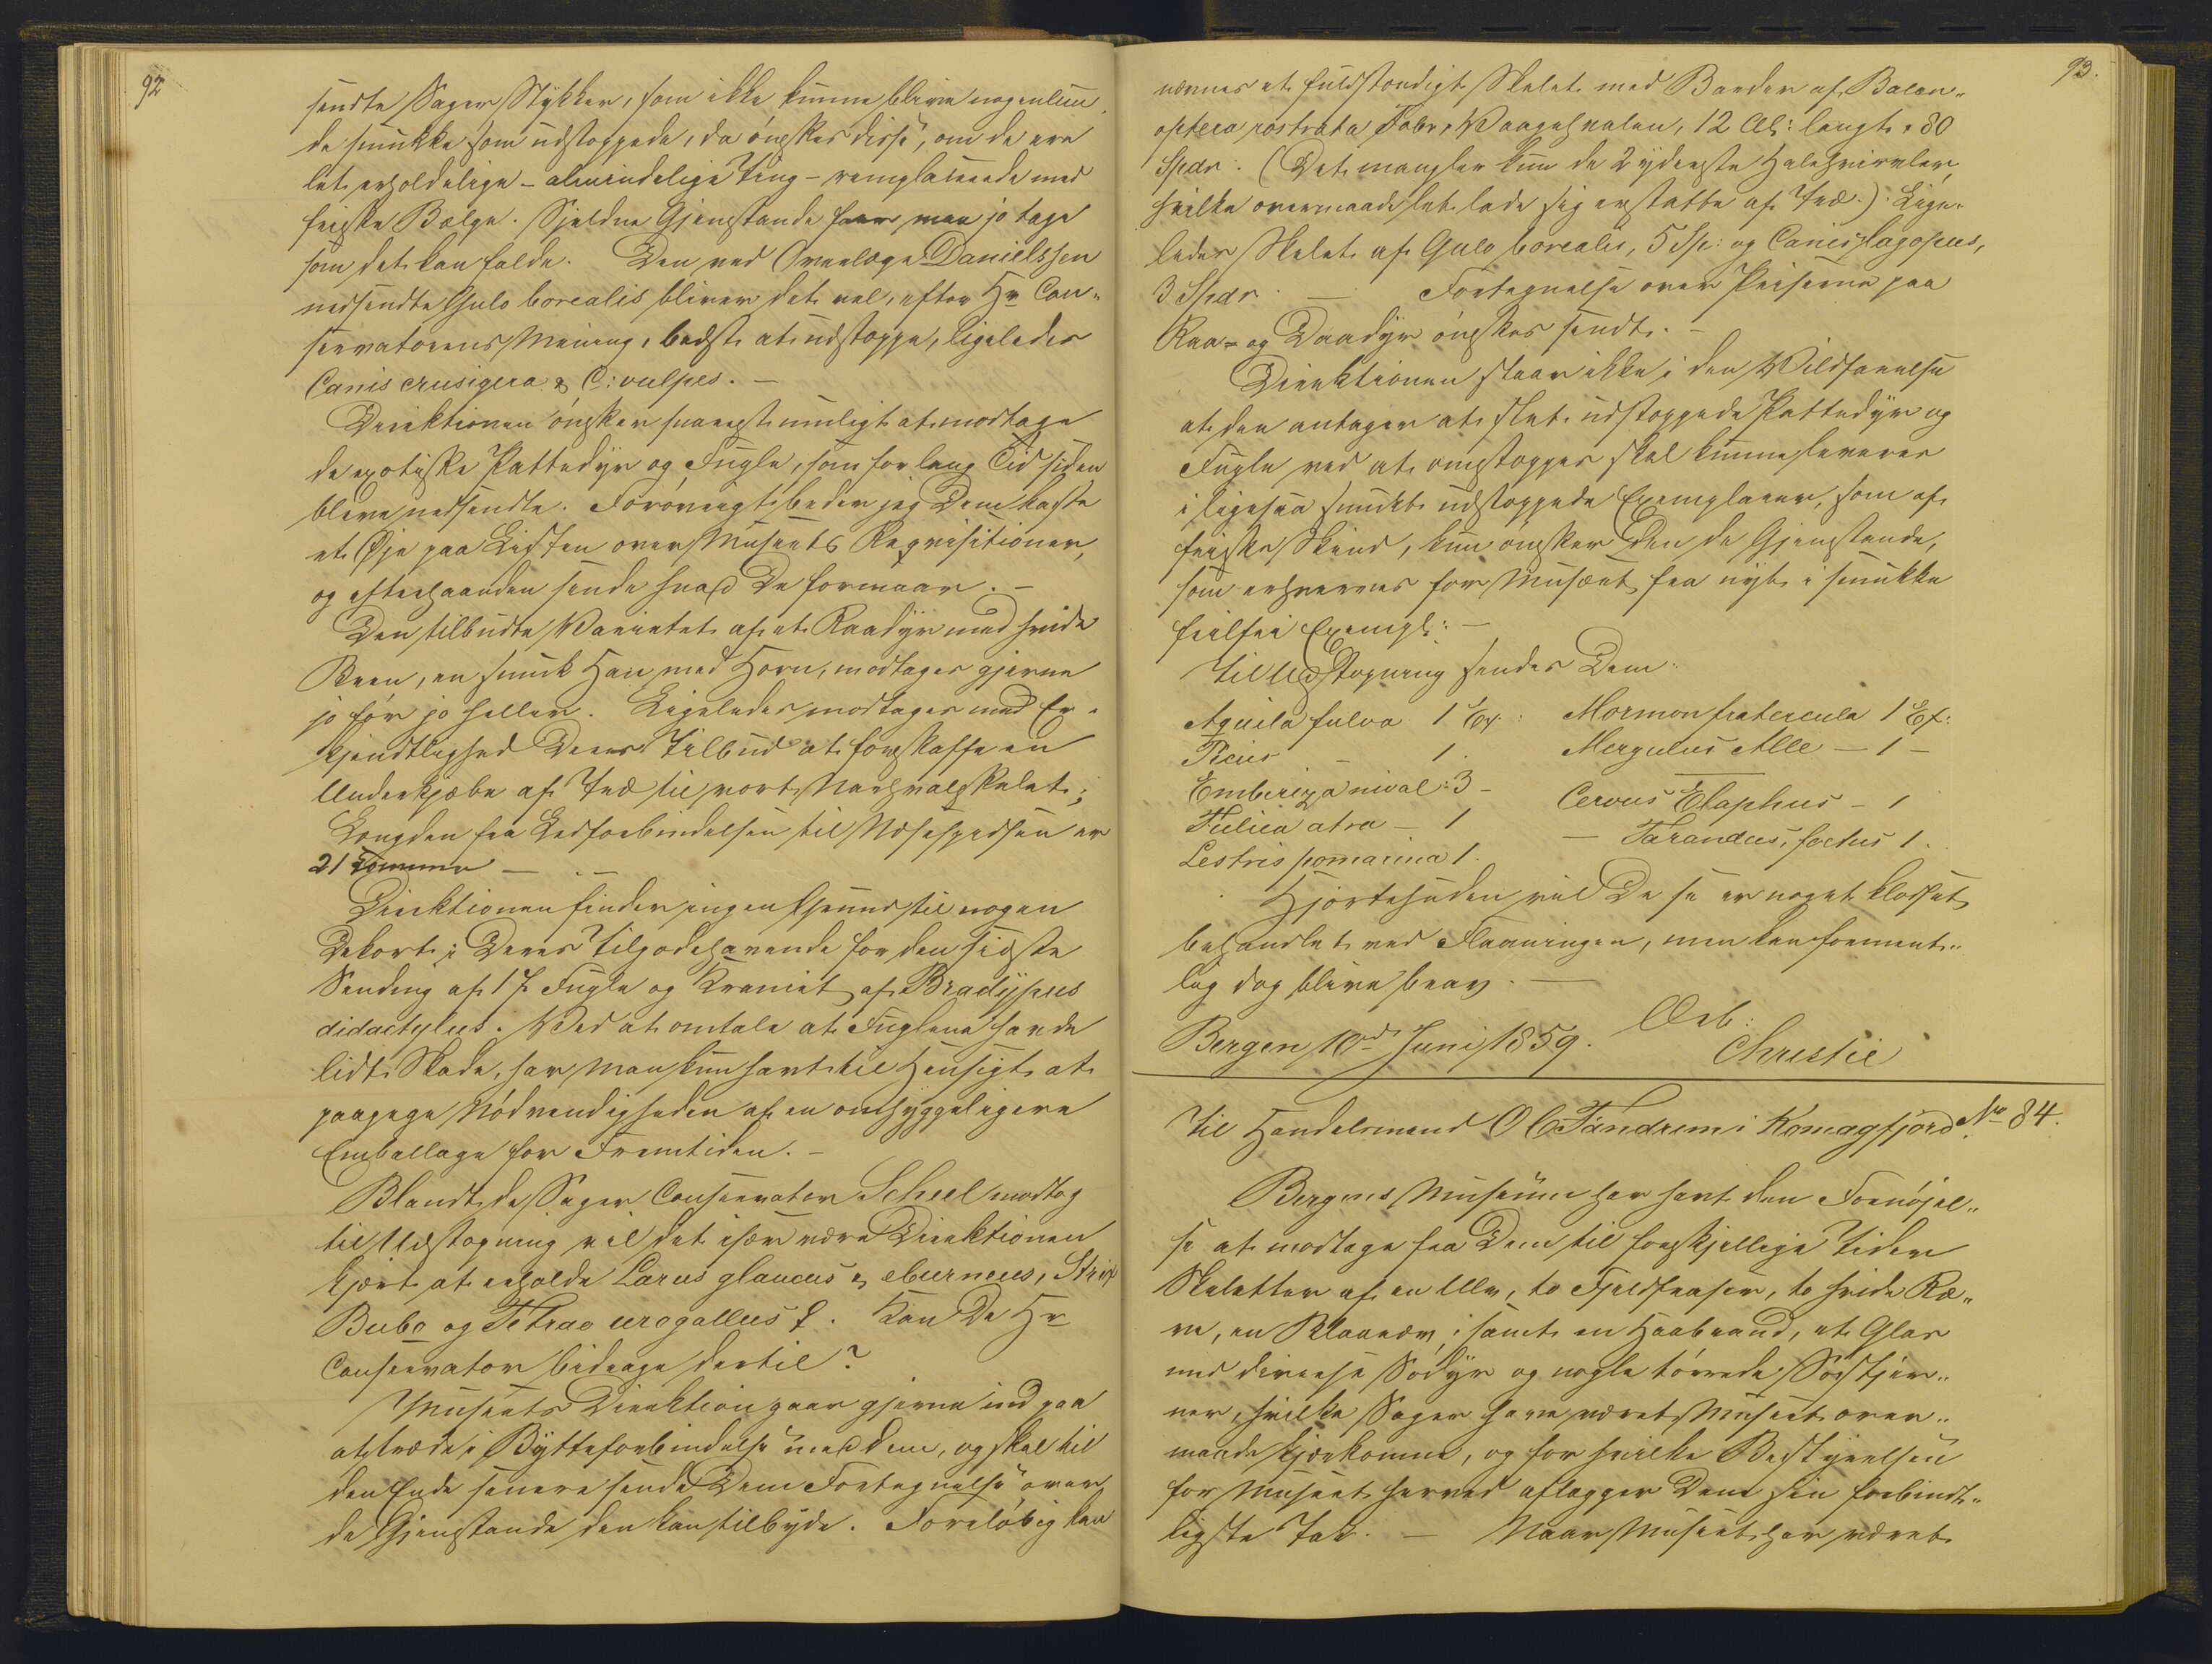 92
sendte Sager Stykker, som ikke kunne blive nogenlun„
de smukke som udstoppede, da ønskes disse, om de ere
let erholdelige – almindelige Ting – remplacerede med
friske Bælge. Sjeldne Gjenstande faar man jo tage
som det kan falde. Den ved Overlæge Danielssen
nedsendte Gulo borealis bliver det vel, efter Hr Con„
servatorens Mening, bedst at udstoppe, ligeledes
Canis crusigera & C: vulpes. –
Direktionen ønsker snarest muligt at modtage
de exotiske Pattedyr og Fugle, som for lang Tid siden
bleve nedsendte. Forøvrigt beder jeg Dem kaste
et Øje paa Listen over Musæets Reqvisitioner,
og efterhaanden sende hvad De formaar. –
Den tilbudte Varietet af et Raadyr med hvide
Been, en smuk Han med Horn, modtages gjerne
jo før jo heller. Ligeledes modtages med Er„
kjendtlighed Deres Tilbud at forskaffe en
Underkjæbe af Træ til vort Narhvalskelet;
Længden fra Ledforbindelsen til Næsespidsen er
21 Tommer —
Direktionen finder ingen Grund til nogen
Dekort i Deres Tilgodehavende for den sidste
Sending af 17 Fugle og Kraniet af Bradypus
didactylus. Ved at omtale at Fuglene havde
lidt Skade, har man kun havt til Hensigt at
paapege Nødvendigheden af en omhyggeligere
Emballage for Fremtiden. –
Blandt de Sager Conservator Scheel modtog
til Udstopning vil det især være Direktionen
kjært at erholde Larus glaucus & eburneus, Strix
Bubo og Tetrao urogallus ♀. Kan De Hr
Conservator bidrage dertil?
Musæets Direktion gaar gjerne ind paa
at træde i Bytteforbindelse med dem, og skal til
den Ende senere sende Dem Fortegnelse over
de Gjenstande den kan tilbyde. Foreløbig kan
93.
nævnes et fuldstændigt Skelet med Barder af Balæn„
optera rostrata Fabr, Vaagehvalen, 12 Al: langt, 80
Spdr: (Det mangler kun de 2 yderste Halehvirvler,
hvilke overmaade let lade sig erstatte af Træ.) Lige„
ledes Skelet af Gulo borealis, 5 Sp: og Canis lagopus,
3 Spdr. — Fortegnelse over Priserne paa
Raa- og Daadyr ønskes sendt. –
Direktionen staar ikke i den Vildfarelse
at den antager at slet udstoppede Pattedyr og
Fugle ved at omstoppes skal kunne leveres
i ligesaa smukt udstoppede Exemplarer, som af
friske Skind, kun ønsker den de Gjenstande,
som erhverves for Musæet fra nyt i smukke
feilfri Exempl: –
Til Udstopning sendes Dem:
Aquila fulva 1 Ex: Mormon fratercula 1 Ex:
Picus – 1. Mergulus Alle – 1 –
Emberiza nival: 3 – Cervus Elaphus – 1
Fulica atra – 1 – Tarandus, foetus 1.
Lestris pomarina 1.
Hjortehuden vil De se er noget klodset
behandlet ved Flaaningen, men kan forment„
lig dog blive brav. —
Bergen 10d Juni 1859. Ærb:
Christie
Til Handelsmand O C Fandrem i Komagfjord No 84.
Bergens Musæum har havt den Fornøjel„
se at modtage fra Dem til forskjellige Tider
Skeletter af en Ulv, to Fjeldfraser, to hvide Ræ„
ve, en Blaaræv, samt en Haabrand, et Glas
med diverse Sødyr og nogle tørrede Søstjer„
ner, hvilke Sager have været Musæet over„
maade kjærkomne, og for hvilke Bestyrelsen
for Musæet herved aflægger Dem sin forbindt„
ligste Tak. — Naar Musæet har været